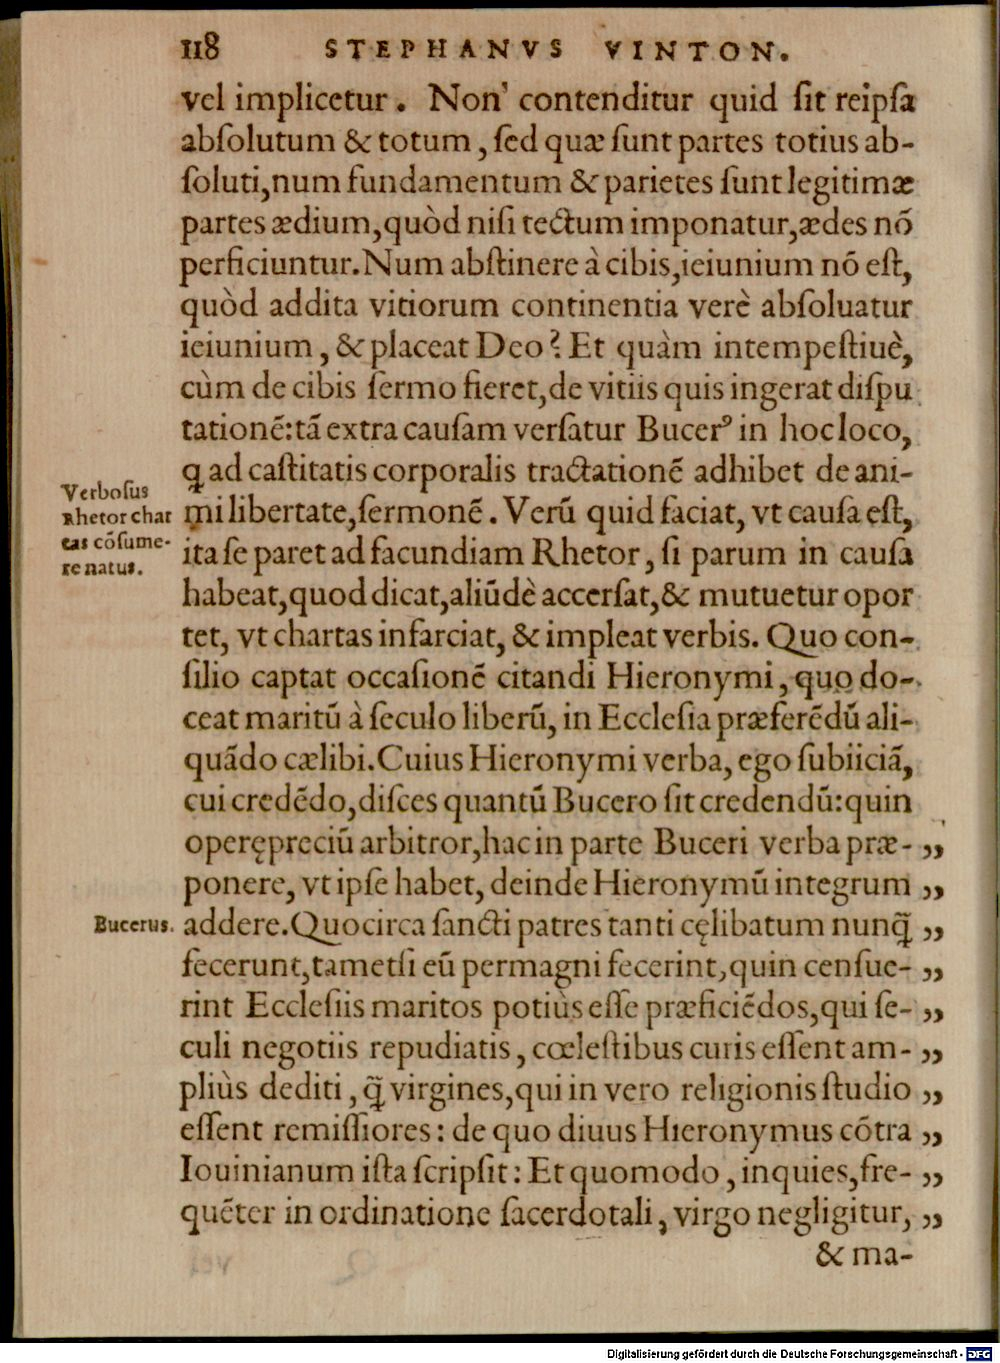 118 STEPHANVS VINTON.
vel implicetur. Non' contenditur quid ſit reipſa
abſolutum & totum, ſed quæ ſunt partes totius ab-
ſoluti, num fundamentum & parietes ſunt legitimæ
partes ædium, quòd niſi tectum imponatur, ædes nō
perficiuntur. Num abſtinere à cibis, ieiunium nō eſt,
quòd addita vitiorum continentia verè abſoluatur
ieiunium, & placeat Deo? Et quàm intempeſtiuè,
cùm de cibis ſermo fieret, de vitiis quis ingerat diſpu
tationē: tā extra cauſam verſatur Bucerꝰ in hoc loco,
q ad caſtitatis corporalis tractationē adhibet de ani-
mi libertate, ſermonē. Verū quid faciat, vt cauſa eſt,
ita ſe paret ad facundiam Rhetor, ſi parum in cauſa
habeat, quod dicat, aliūdè accerſat, & mutuetur opor
tet, vt chartas infarciat, & impleat verbis. Quo con-
ſilio captat occaſionē citandi Hieronymi, quo do-
ceat maritū à ſeculo liberū, in Eccleſia præferēdū ali-
quādo cælibi. Cuius Hieronymi verba, ego ſubiiciā,
cui credēdo, diſces quantū Bucero ſit credendū: quin
operępreciū arbitror, hac in parte Buceri verba præ- „
ponere, vt ipſe habet, deinde Hieronymū integrum „
addere. Quocirca ſancti patres tanti cęlibatum nunq̃ „
fecerunt, tametſi eū permagni fecerint, quin cenſue- „
rint Eccleſiis maritos potiùs eſſe præficiēdos, qui ſe- „
culi negotiis repudiatis, cœleſtibus curis eſſent am- „
pliùs dediti, q̃ virgines, qui in vero religionis ſtudio „
eſſent remiſſiores: de quo diuus Hieronymus cōtra „
Iouinianum iſta ſcripſit: Et quomodo, inquies, fre- „
quēter in ordinatione ſacerdotali, virgo negligitur, „
& ma-
Verboſus
Rhetor char
tas cōſume-
re natus.
Bucerus.
Digitalisierung gefördert durch die Deutsche Forschungsgemeinschaft - DFG